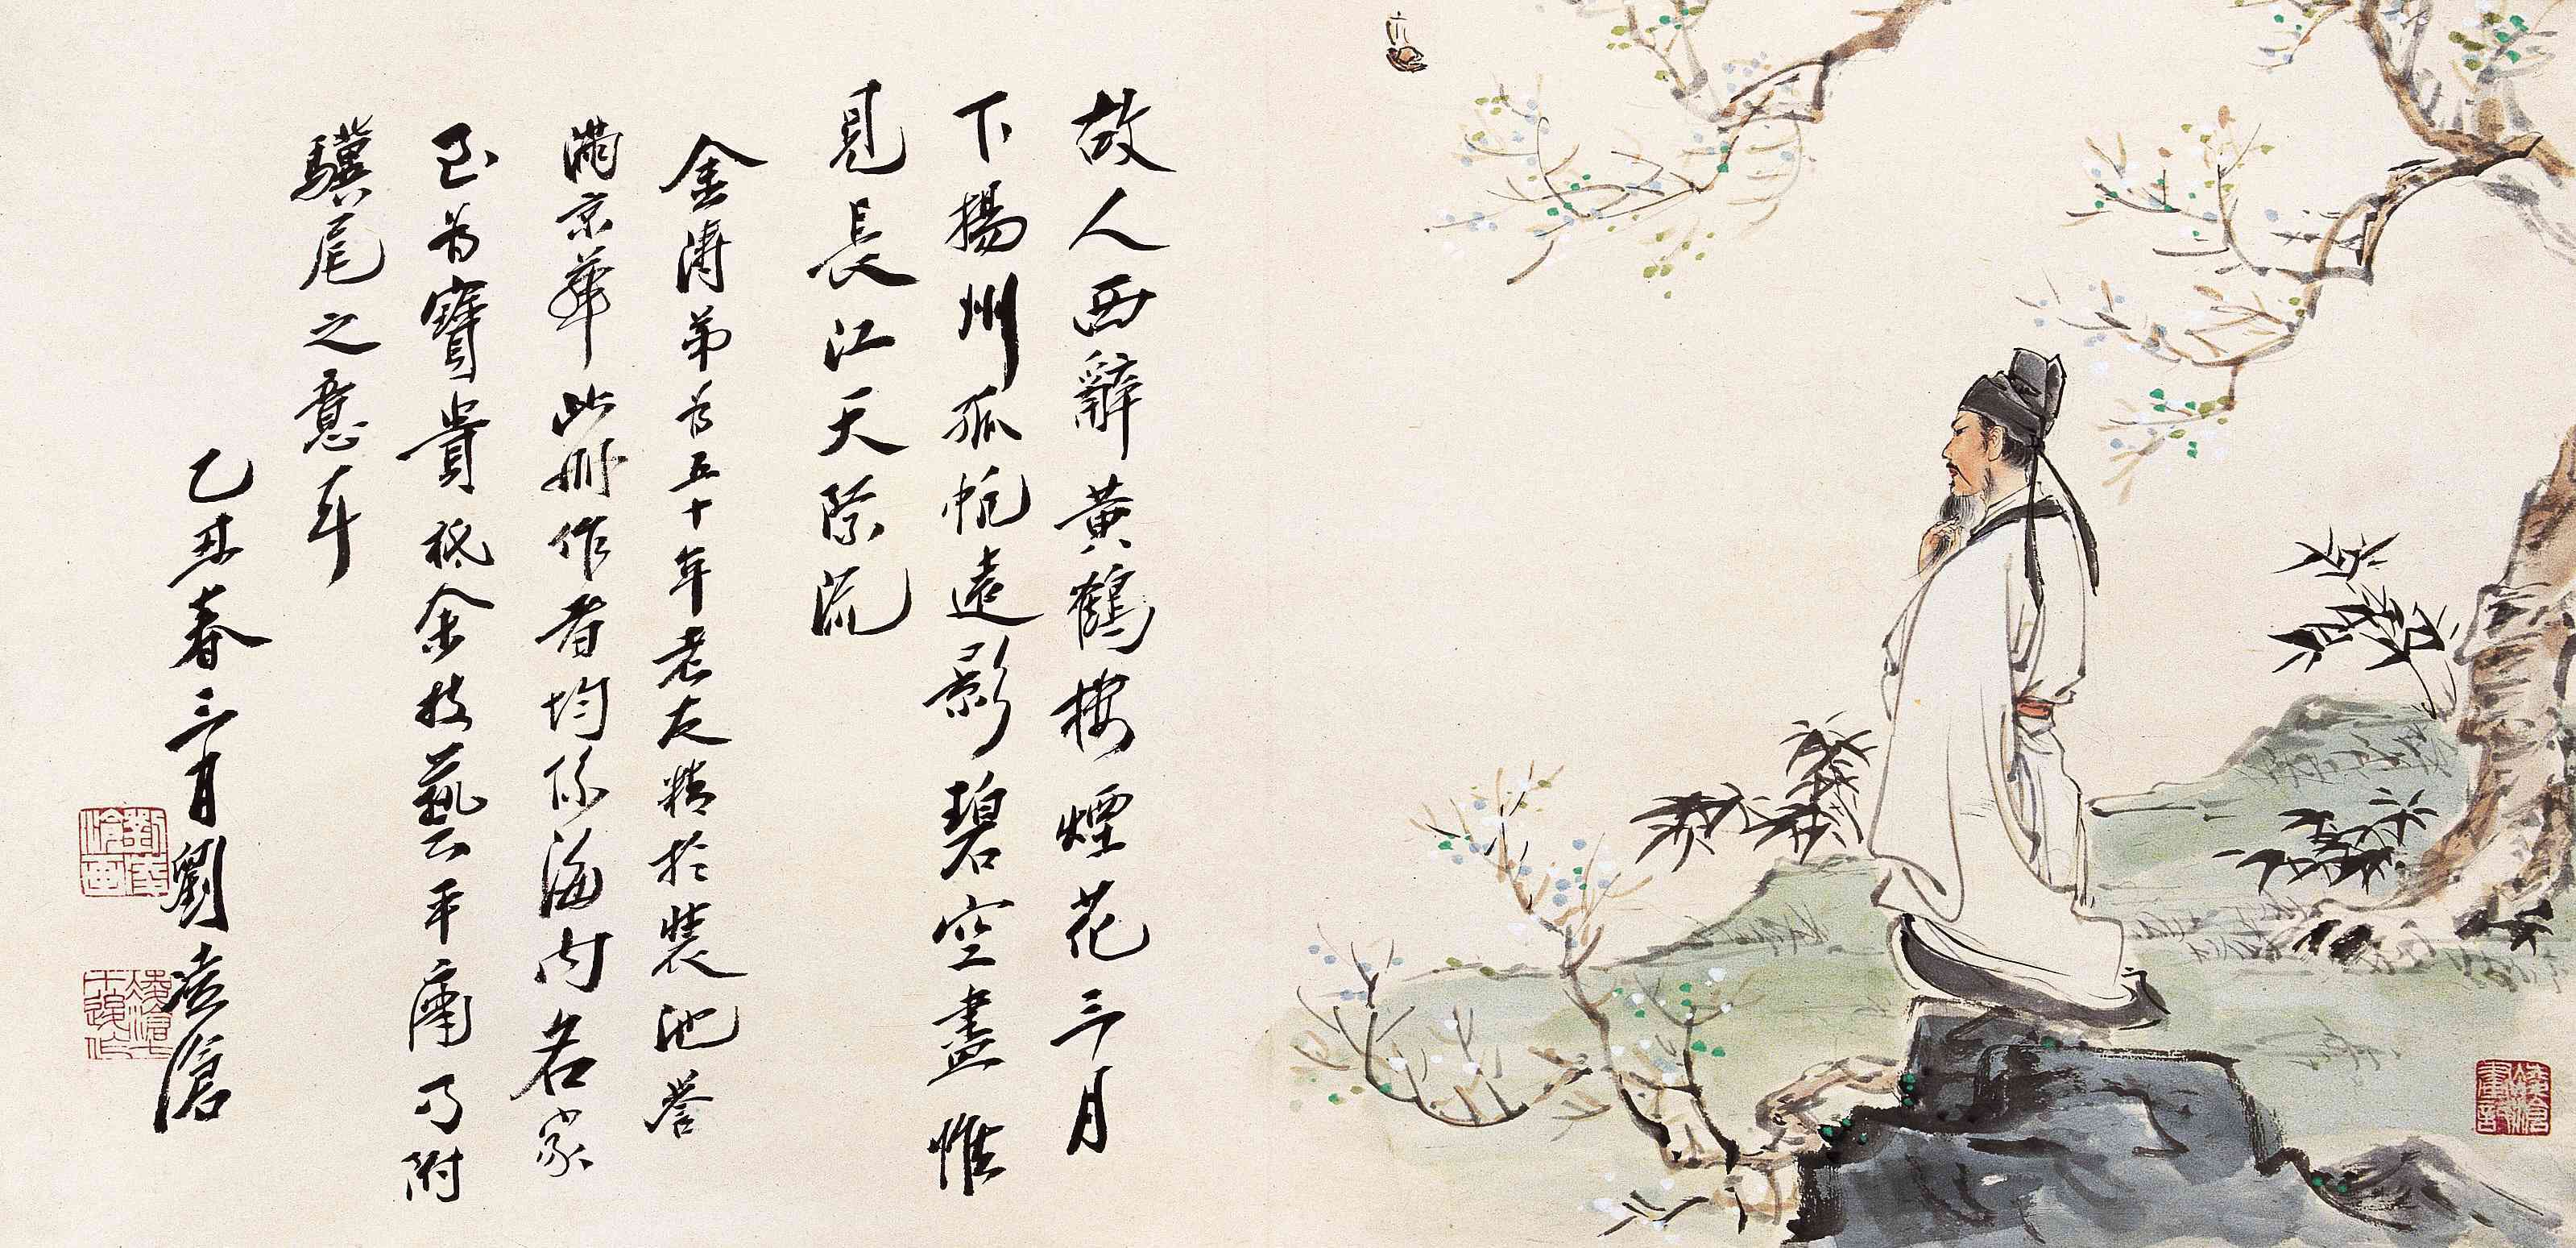 故人西辭黃鶴樓煙花三月
下揚州孤帆遠影碧空盡惟
見長江天際流
金濤弟為五十年老友精於裝池譽
滿京華此冊作者均係海內名家
至為寶貴祗余技藝平庸乃附
驥尾之意耳
乙丑春三月劉凌滄
凌滄七十後作